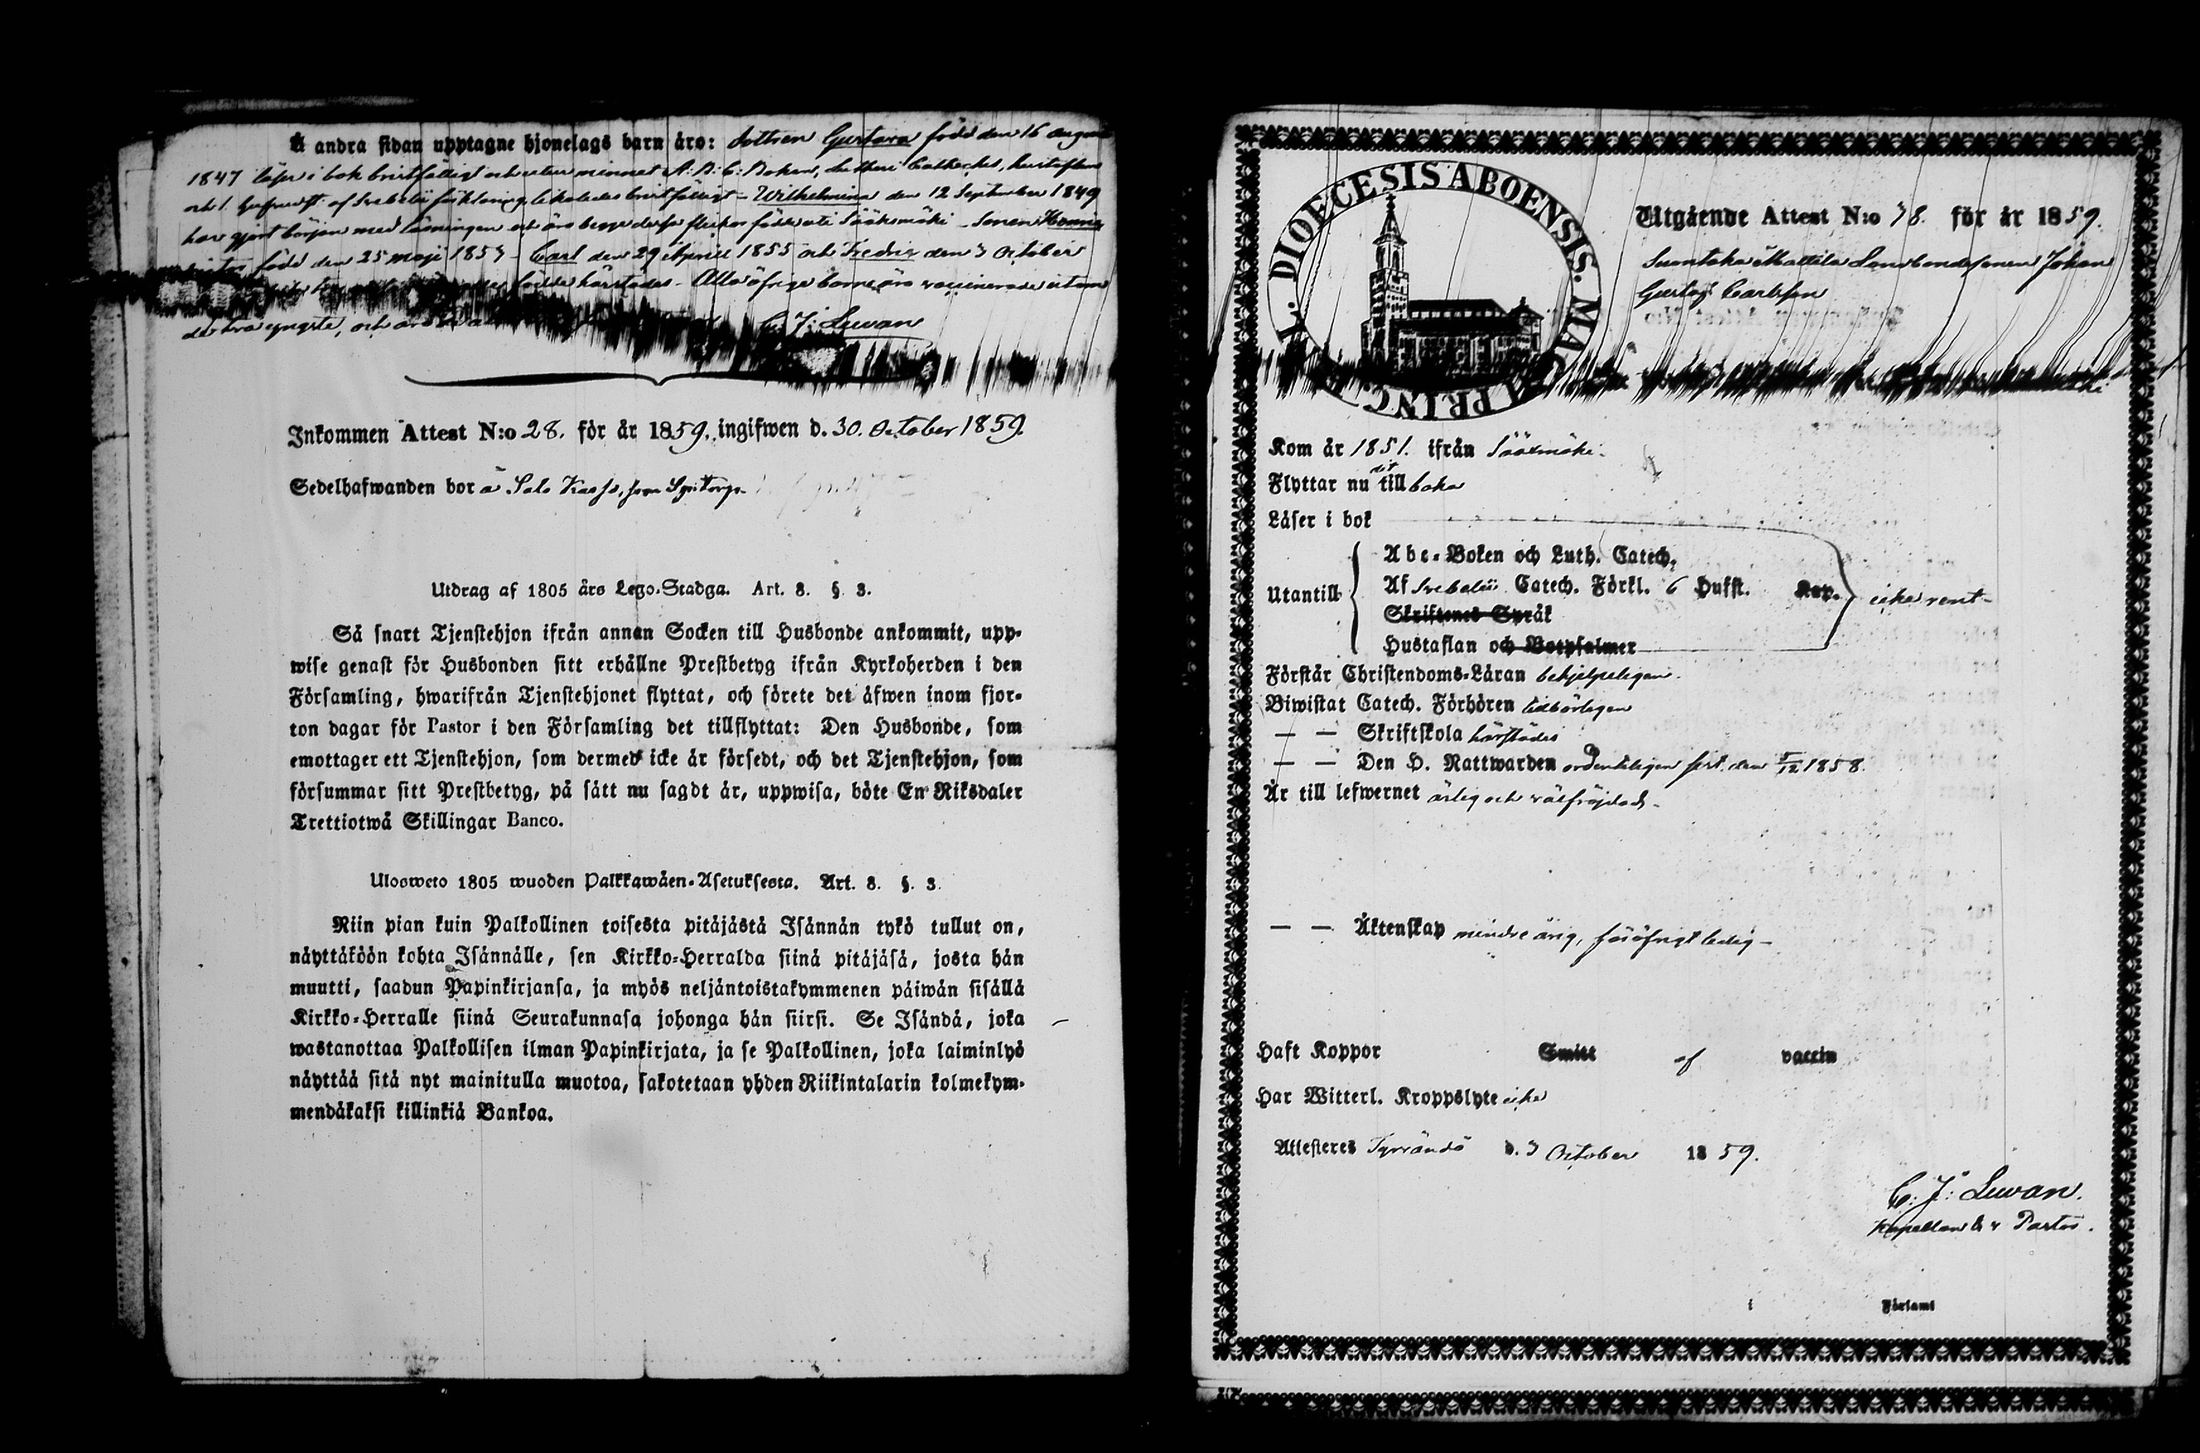 Å andra sidan upptagne hjonelags barn äro: dottren Gustava född den 16 augusti
1847 läser i bok bristfälligt och utur minnet A: B: C: Boken, Lutheri Cateches, hustaflan
och 1 hufvudst: af Svebelii förklaring likaledes bristfälligt – Wilhelmina den 12 September 1849
har gjort början med läsningen och äro begge dessa flickor födde uti Sääksmäki – Sonen
född den 25 maji 1853 – Carl den 29 Aprill 1855 och Fredric den 3 October
födde härstädes – Alla öfrige barnen äro vaccinerade utom
de två yngste, och äro
C. J: Lewan
Inkommen Attest N:o 28. för år 1859. ingifwen d. 30. October 1859.
Sedelhafwanden bor å Salo
Utdrag af 1805 års Lego-Stadga. Art. 8. §. 3.
Så snart Tjenstehjon ifrån annan Socken till Husbonde ankommit, upp-
wise genast för Husbonden sitt erhållne Prestbetyg ifrån Kyrkoherden i den
Församling, hwarifrån Tjenstehjonet flyttat, och förete det äfwen inom fjor-
ton dagar för Pastor i den Församling det tillflyttat: Den Husbonde, som
emottager ett Tjenstehjon, som dermed icke är försedt, och det Tjenstehjon, som
försummar sitt Prestbetyg, på sätt nu sagdt är, uppwisa, böte En Riksdaler
Trettiotwå Skillingar Banco.
Ulosweto 1805 wuoden Palkkawäen-Asetuksesta. Art. 8. §. 3.
Niin pian kuin Palkollinen toisesta pitäjästä Isännän tykö tullut on,
näyttäköön kohta Isännälle, sen Kirkko-Herralda siinä pitäjäsä, josta hän
muutti, saadun Papinkirjansa, ja myös neljäntoistakymmenen päiwän sisällä
Kirkko-Herralle siinä Seurakunnasa johonga hän siirsi. Se Isändä, joka
wastanottaa Palkollisen ilman Papinkirjata, ja se Palkollinen, joka laiminlyö
näyttää sitä nyt mainitulla muotoa, sakotetaan yhden Riikintalarin kolmekym-
mendäkaksi killinkiä Bankoa.
L. DIOECESIS ABOENSIS. MAGN PRINC
Utgående Attest N:o 78. för år 1859.
Suontaka Mattila Landbondesonen Johan
Gustaf Carlsson
Kom år 1851. ifrån Sääxmäki.
Flyttar nu dit tillbaka
Läser i bok
Abc-Boken och Luth. Catech.
Utantill Af Svebelii Catech. Förkl. 6 Hufst. Kap. icke rent –
Skriftenes Språk
Hustaflan och Botpsalmer
Förstår Christendoms-Läran behjelpeligen.
Biwistat Catech. Förhören tidbörligen
— — Skriftskola härstädes
— — Den H. Nattwarden ordenteligen sist den 5/12 1858.
Är till lefwernet ärlig och välfräjdad –
— — Äktenskap minderårig, föröfrigt ledig –
Haft Koppor Smitt af vaccin
Har Witterl. Kroppslyte icke
Attesteres Tyrvändö d. 3 October 1859.
C: J: Lewan.
Kapellan & v Pastor.
i Församl